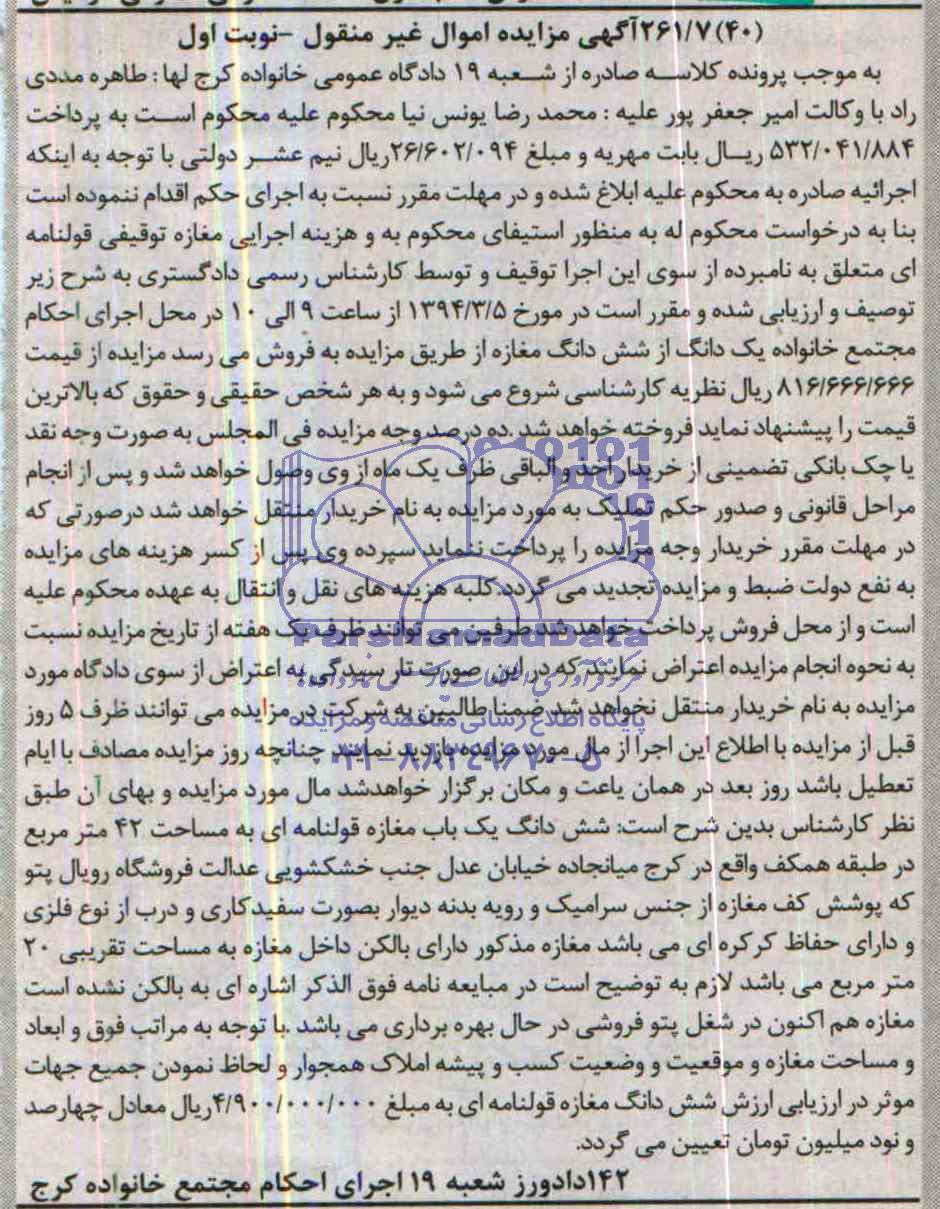 (۴۰)۲۶۱/۷آگهی مزایده اموال غیر منقول -نوبت اول
به موجب پرونده کلاسه صادره از شعبه ۱۹ دادگاه عمومی خانواده کرج لها: طاهره مددی
راد با وکالت امیر جعفر پور علیه : محمد رضا یونس نیا محکوم علیه محکوم است به پرداخت
۵۳۲/۰۴۱/۸۸۴ ریال بابت مهریه و مبلغ ۲۶/۶۰۲/۰۹۴ریال نیم عشر دولتی با توجه به اینکه
اجرائیه صادره به محکوم علیه ابلاغ شده و در مهلت مقرر نسبت به اجرای حکم اقدام ننموده است
بنا به درخواست محکوم له به منظور استیفای محکوم به و هزینه اجرایی مغازه توقیفی قولنامه
ای متعلق به نامبرده از سوی این اجرا توقیف و توسط کارشناس رسمی دادگستری به شرح زیر
توصیف و ارزیابی شده و مقرر است در مورخ ۱۳۹۴/۳/۵ از ساعت ۹ الی ۱۰ در محل اجرای احکام
مجتمع خانواده یک دانگ از شش دانگ مغازه از طریق مزایده به فروش می رسد مزایده از قیمت
۸۱۶/۶۶۶/۶۶۶ ریال نظریه کارشناسی شروع می شود و به هر شخص حقیقی و حقوق که بالاترین
قیمت را پیشنهاد نماید فروخته خواهد شد .ده درصد وجه مزایده فی المجلس به صورت وجه نقد
یا چک بانکی تضمینی از خریدار اخذ و الباقی ظرف یک ماه از وی وصول خواهد شد و پس از انجام
مراحل قانونی و صدور حکم تملیک به مورد مزایده به نام خریدار منتقل خواهد شد درصورتی که
در مهلت مقرر خریدار وجه مزایده را پرداخت ننماید سپرده وی پس از کسر هزینه های مزایده
به نفع دولت ضبط و مزایده تجدید می گردد.کلبه هزینه های نقل و انتقال به عهده محکوم علیه
است و از محل فروش پرداخت خواهد شد طرفین می توانند ظرف یک هفته از تاریخ مزایده نسبت
به نحوه انجام مزایده اعتراض نمایند که در این صورت تا رسیدگی به اعتراض از سوی دادگاه مورد
مزایده به نام خریدار منتقل نخواهد شد ضمنا طالبین به شرکت در مزایده می توانند ظرف ۵ روز
قبل از مزایده با اطلاع این اجرا از مال مورد مزایده بازدید نمایند چنانچه روز مزایده مصادف با ایام
تعطیل باشد روز بعد در همان یاعت و مکان برگزار خواهدشد مال مورد مزایده و بهای آن طبق
نظر کارشناس بدین شرح است: شش دانگ یک باب مغازه قولنامه ای به مساحت ۴۲ متر مربع
در طبقه همکف واقع در کرج میانجاده خیابان عدل جنب خشکشویی عدالت فروشگاه رویال پتو
که پوشش کف مغازه از جنس سرامیک و رویه بدنه دیوار بصورت سفیدکاری و درب از نوع فلزی
و دارای حفاظ کرکره ای می باشد مغازه مذکور دارای بالکن داخل مغازه به مساحت تقریبی ۲۰
متر مربع می باشد لازم به توضیح است در مبایعه نامه فوق الذکر اشاره ای به بالکن نشده است
مغازه هم اکنون در شغل پتو فروشی در حال بهره برداری می باشد .با توجه به مراتب فوق و ابعاد
و مساحت مغازه و موقعیت و وضعیت کسب و پیشه املاک همجوار و لحاظ نمودن جمیع جهات
موثر در ارزیابی ارزش شش دانگ مغازه قولنامه ای به مبلغ ۴/۹۰۰/۰۰۰/۰۰۰ریال معادل چهارصد
و نود میلیون تومان تعیین می گردد.
۱۴۲دادورز شعبه ۱۹ اجرای احکام مجتمع خانواده کرج
ParsNamadData
پایگاه اطلاع رسانی مناقصه و مزایده
۰۲۱-۸۸۳۴۹۶۷۰-۵